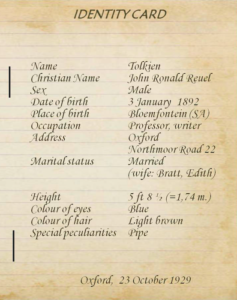 IDENTITY CARD
Name Tolkien
Christian Name John Ronald Reuel
Sex Male
Date of birth 3 January 1892
Place of birth Bloemfontein (SA)
Occupation Professor, writer
Address Oxford
Northmoor Road 22
Marital status Married
(wife: Bratt, Edith)
Height 5 ft 8 ½ (=1,74 m.)
Colour of eyes Blue
Colour of hair Light brown
Special peculiarities Pipe
Oxford, 23 October 1929